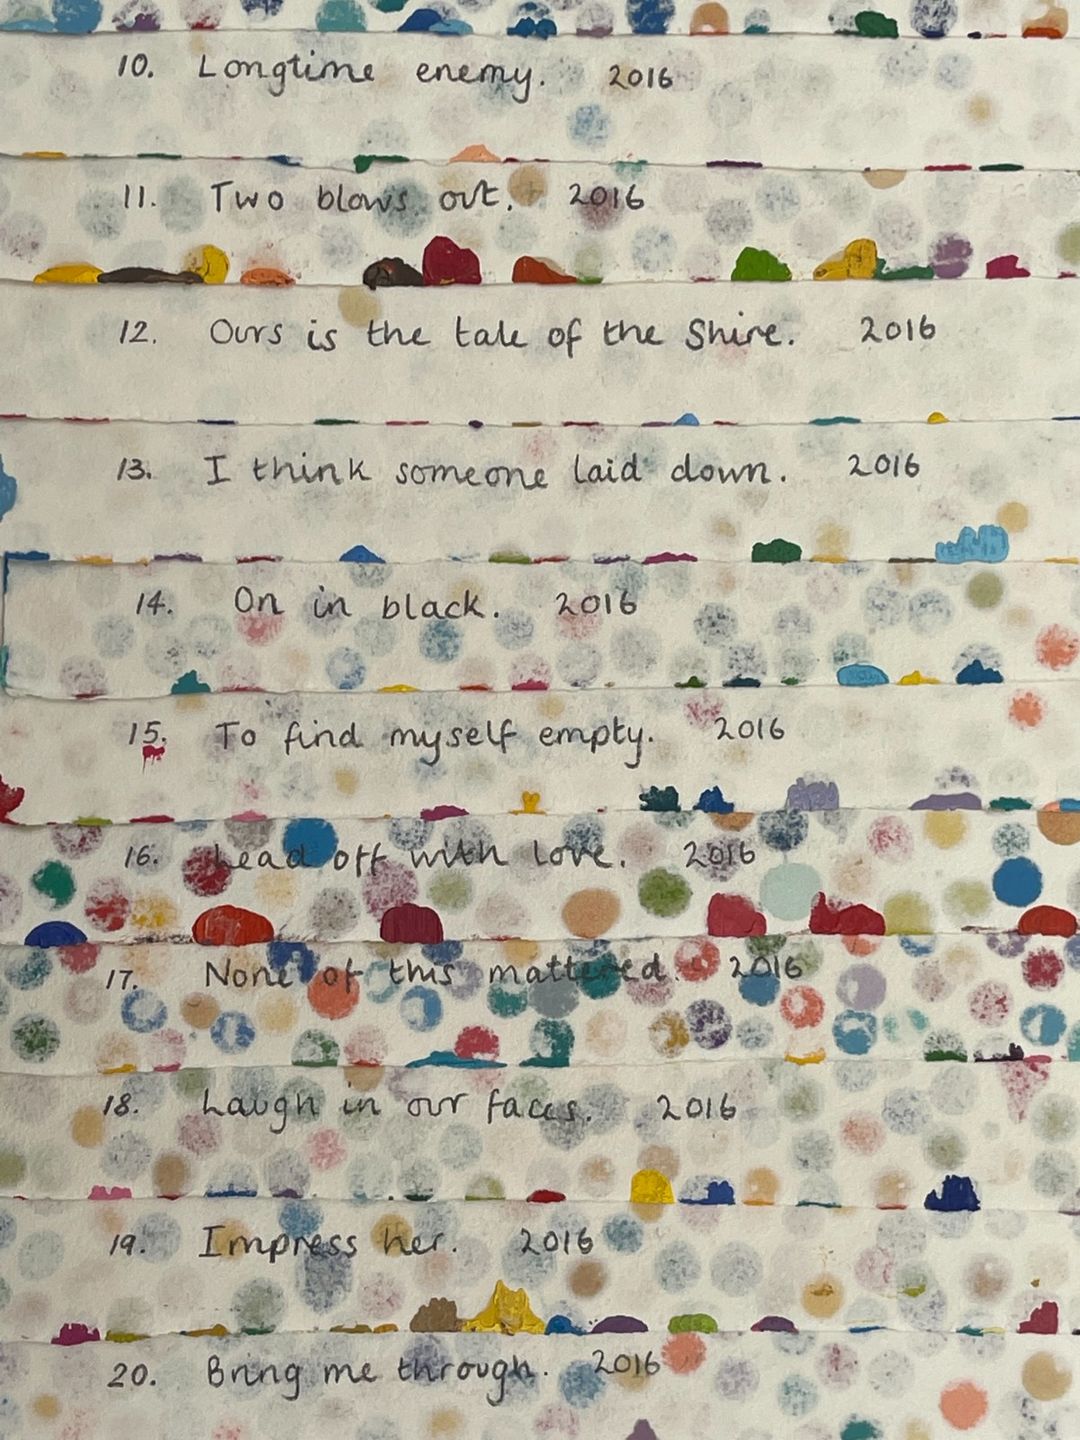 10. Longtime enemy. 2016
11. Two blows out. 2016
12. Ours is the tale of the Shire. 2016
13. I think someone laid down. 2016
14. On in black. 2016
15. To find myself empty. 2016
16. Lead off with love. 2016
17. None of this mattered. 2016
18. Laugh in our faces. 2016
19. Impress her. 2016
20. Bring me through. 2016